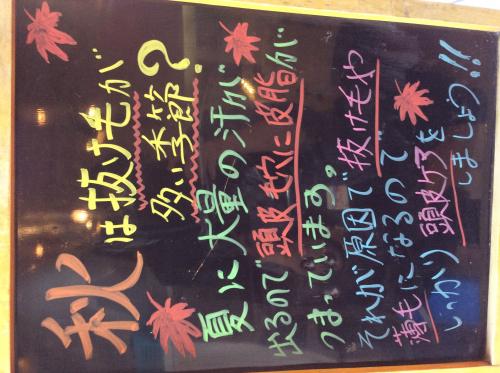 秋は抜け毛が
多い季節?
夏に大量の汗が
出るので頭皮毛穴に皮脂が
つまっています。
それが原因で抜け毛や
薄毛になるので
しっかり頭皮ケアを
しましょう!!